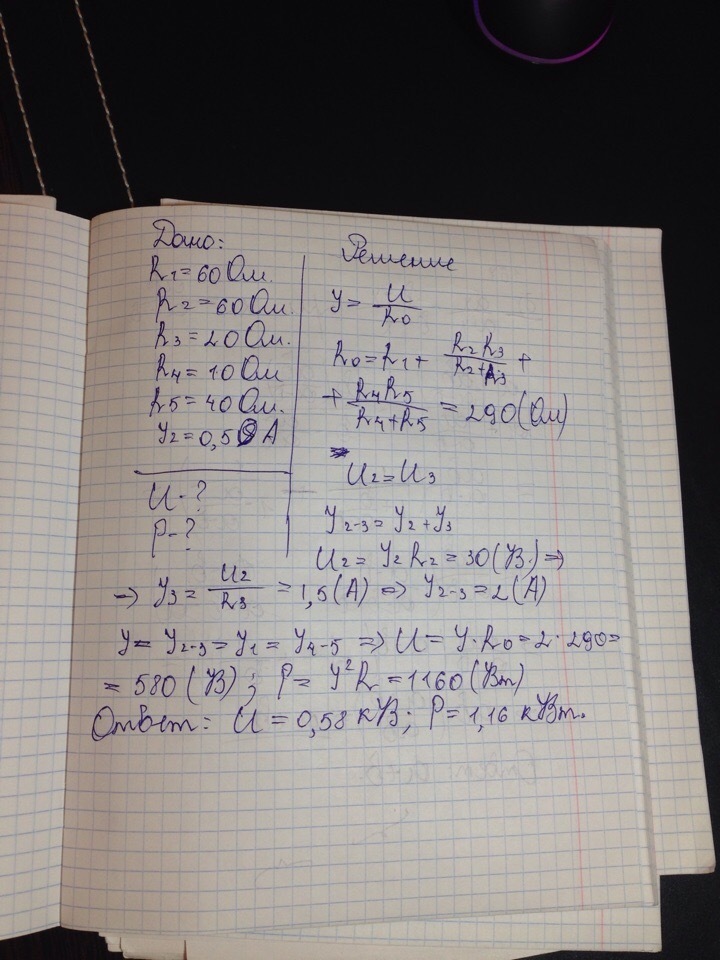 Дано:
R1=60 Ом.
R2=60 Ом.
R3=20 Ом.
R4=10 Ом
R5=40 Ом.
У2=0,5 А
U-?
P-?
Решение
У= U/R0
R0=R1+ R2R3/R2+R3 +
+ R4R5/R4+R5 = 290 (Ом)
U2=U3
У2-3=У2+У3
U2= У2 R2=30(В.)⇒
⇒ У3= U2/R3 =1,5(А) ⇒ У2-3=2(А)
У= У2-3=У1= У4-5 ⇒ U= У·R0=2·290=
= 580 (В); P= У²R =1160 (Вт)
Ответ: U=0,58 кВ; P=1,16 кВт.